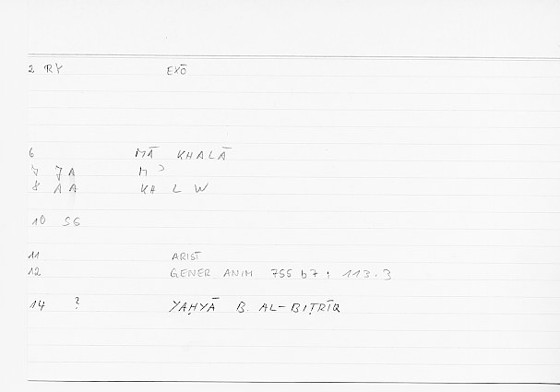 2 RY EXŌ
6 MĀ KHALĀ
7 JA M ʾ
8 AA KH L W
10 SG
11 ARIST
12 GENER ANIM 755 b7 ; 113.3
14 ? YAḤYĀ B. AL-BIṬRĪQ